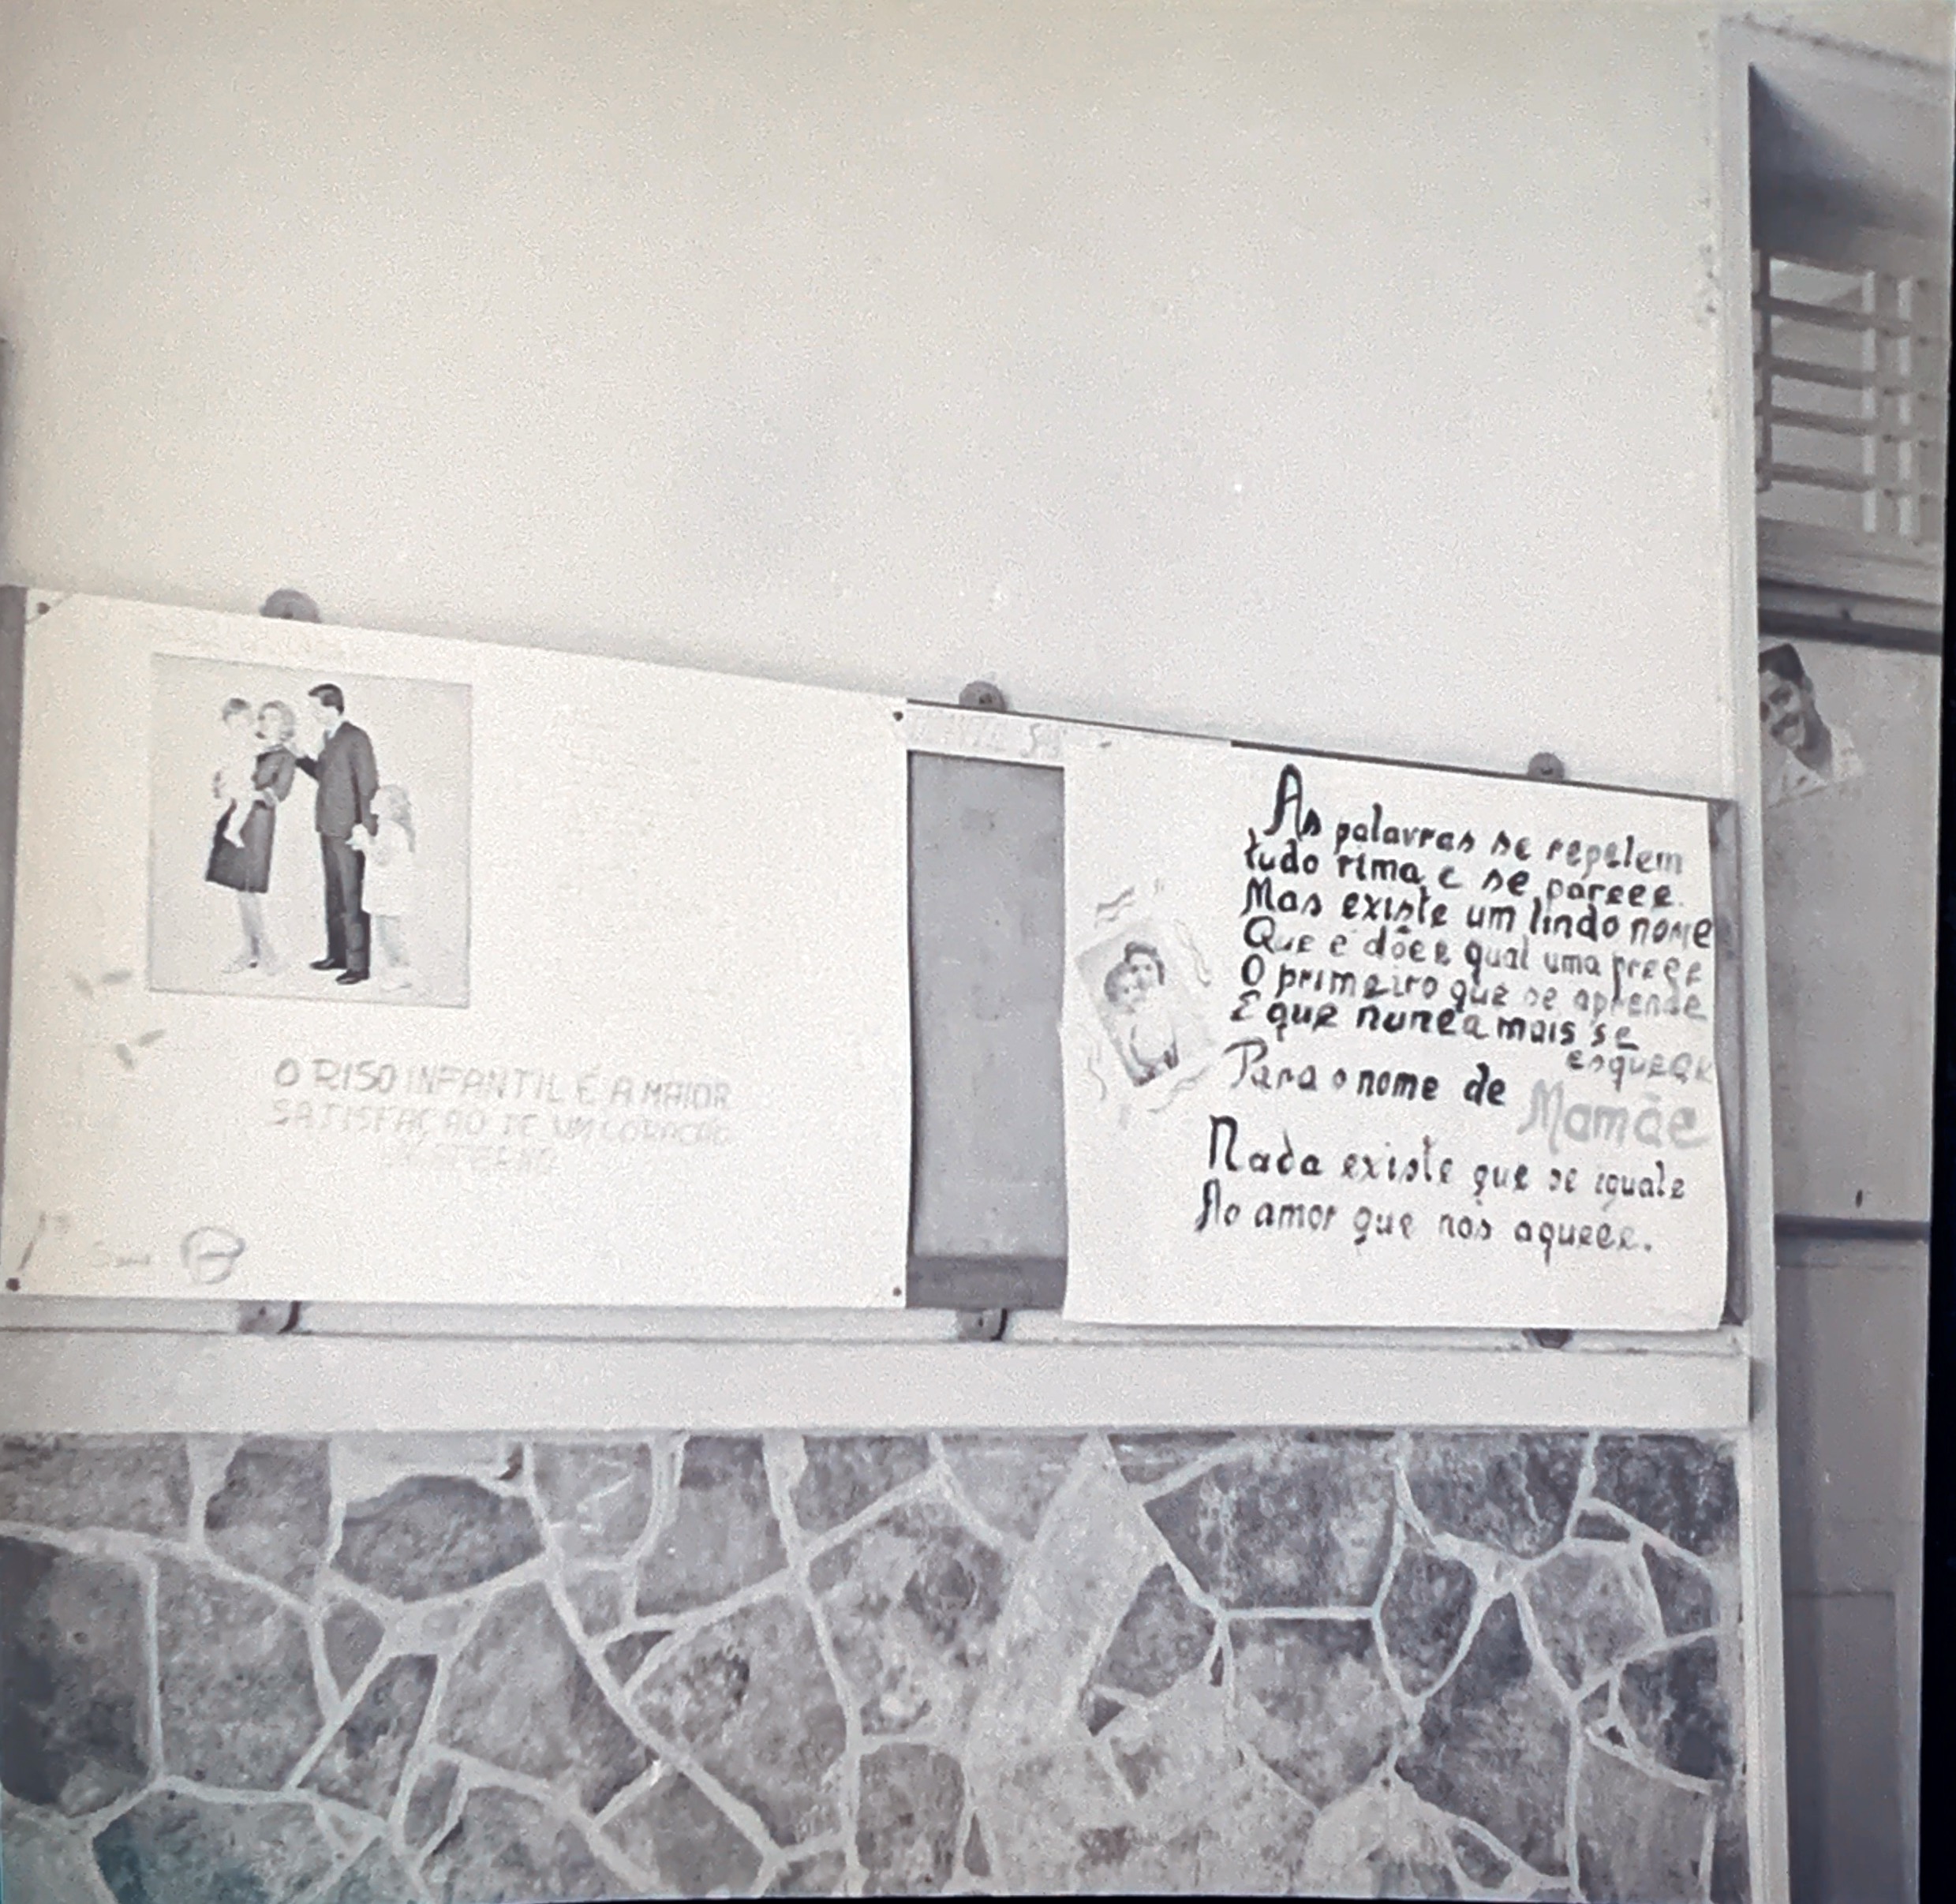 O RISO INFANTIL É A MAIOR
SATISFAÇÃO DE UM CORAÇÃO
As palavras se repetem
tudo rima e se parece.
Mas existe um lindo nome
Que é dôce qual uma prece
O primeiro que se aprende
E que nunca mais se
esquece
Para o nome de Mamãe
Nada existe que se iguale
Ao amor que nos aquece.